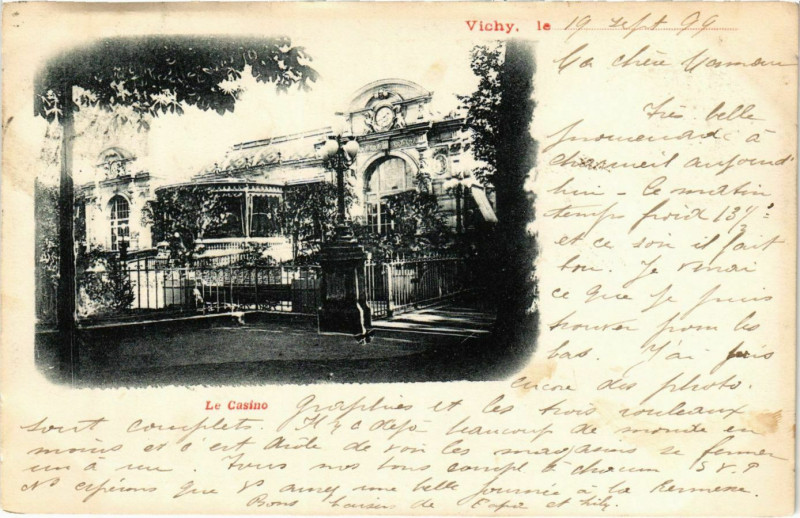 Vichy, le 19 sept 99
Ma chère Maman
Très belle
promenade à
charmeil aujourd'
hui - ce matin
temps froid 13°½
et ce soir il fait
bon. Je verrai
ce que je puis
trouver pour les
bas. J'ai pris
encore des photo.
Le Casino
graphies et les trois rouleaux
sont complets. Il y a déjà beaucoup de monde en
moins et c'est drôle de voir les magasins se fermer
un à un. Tous nos bons compl ts à chacun S.V.P
Ns espérons que Vs aurez une belle journée à la Kermesse.
Bons baisers de Papa et Lily.